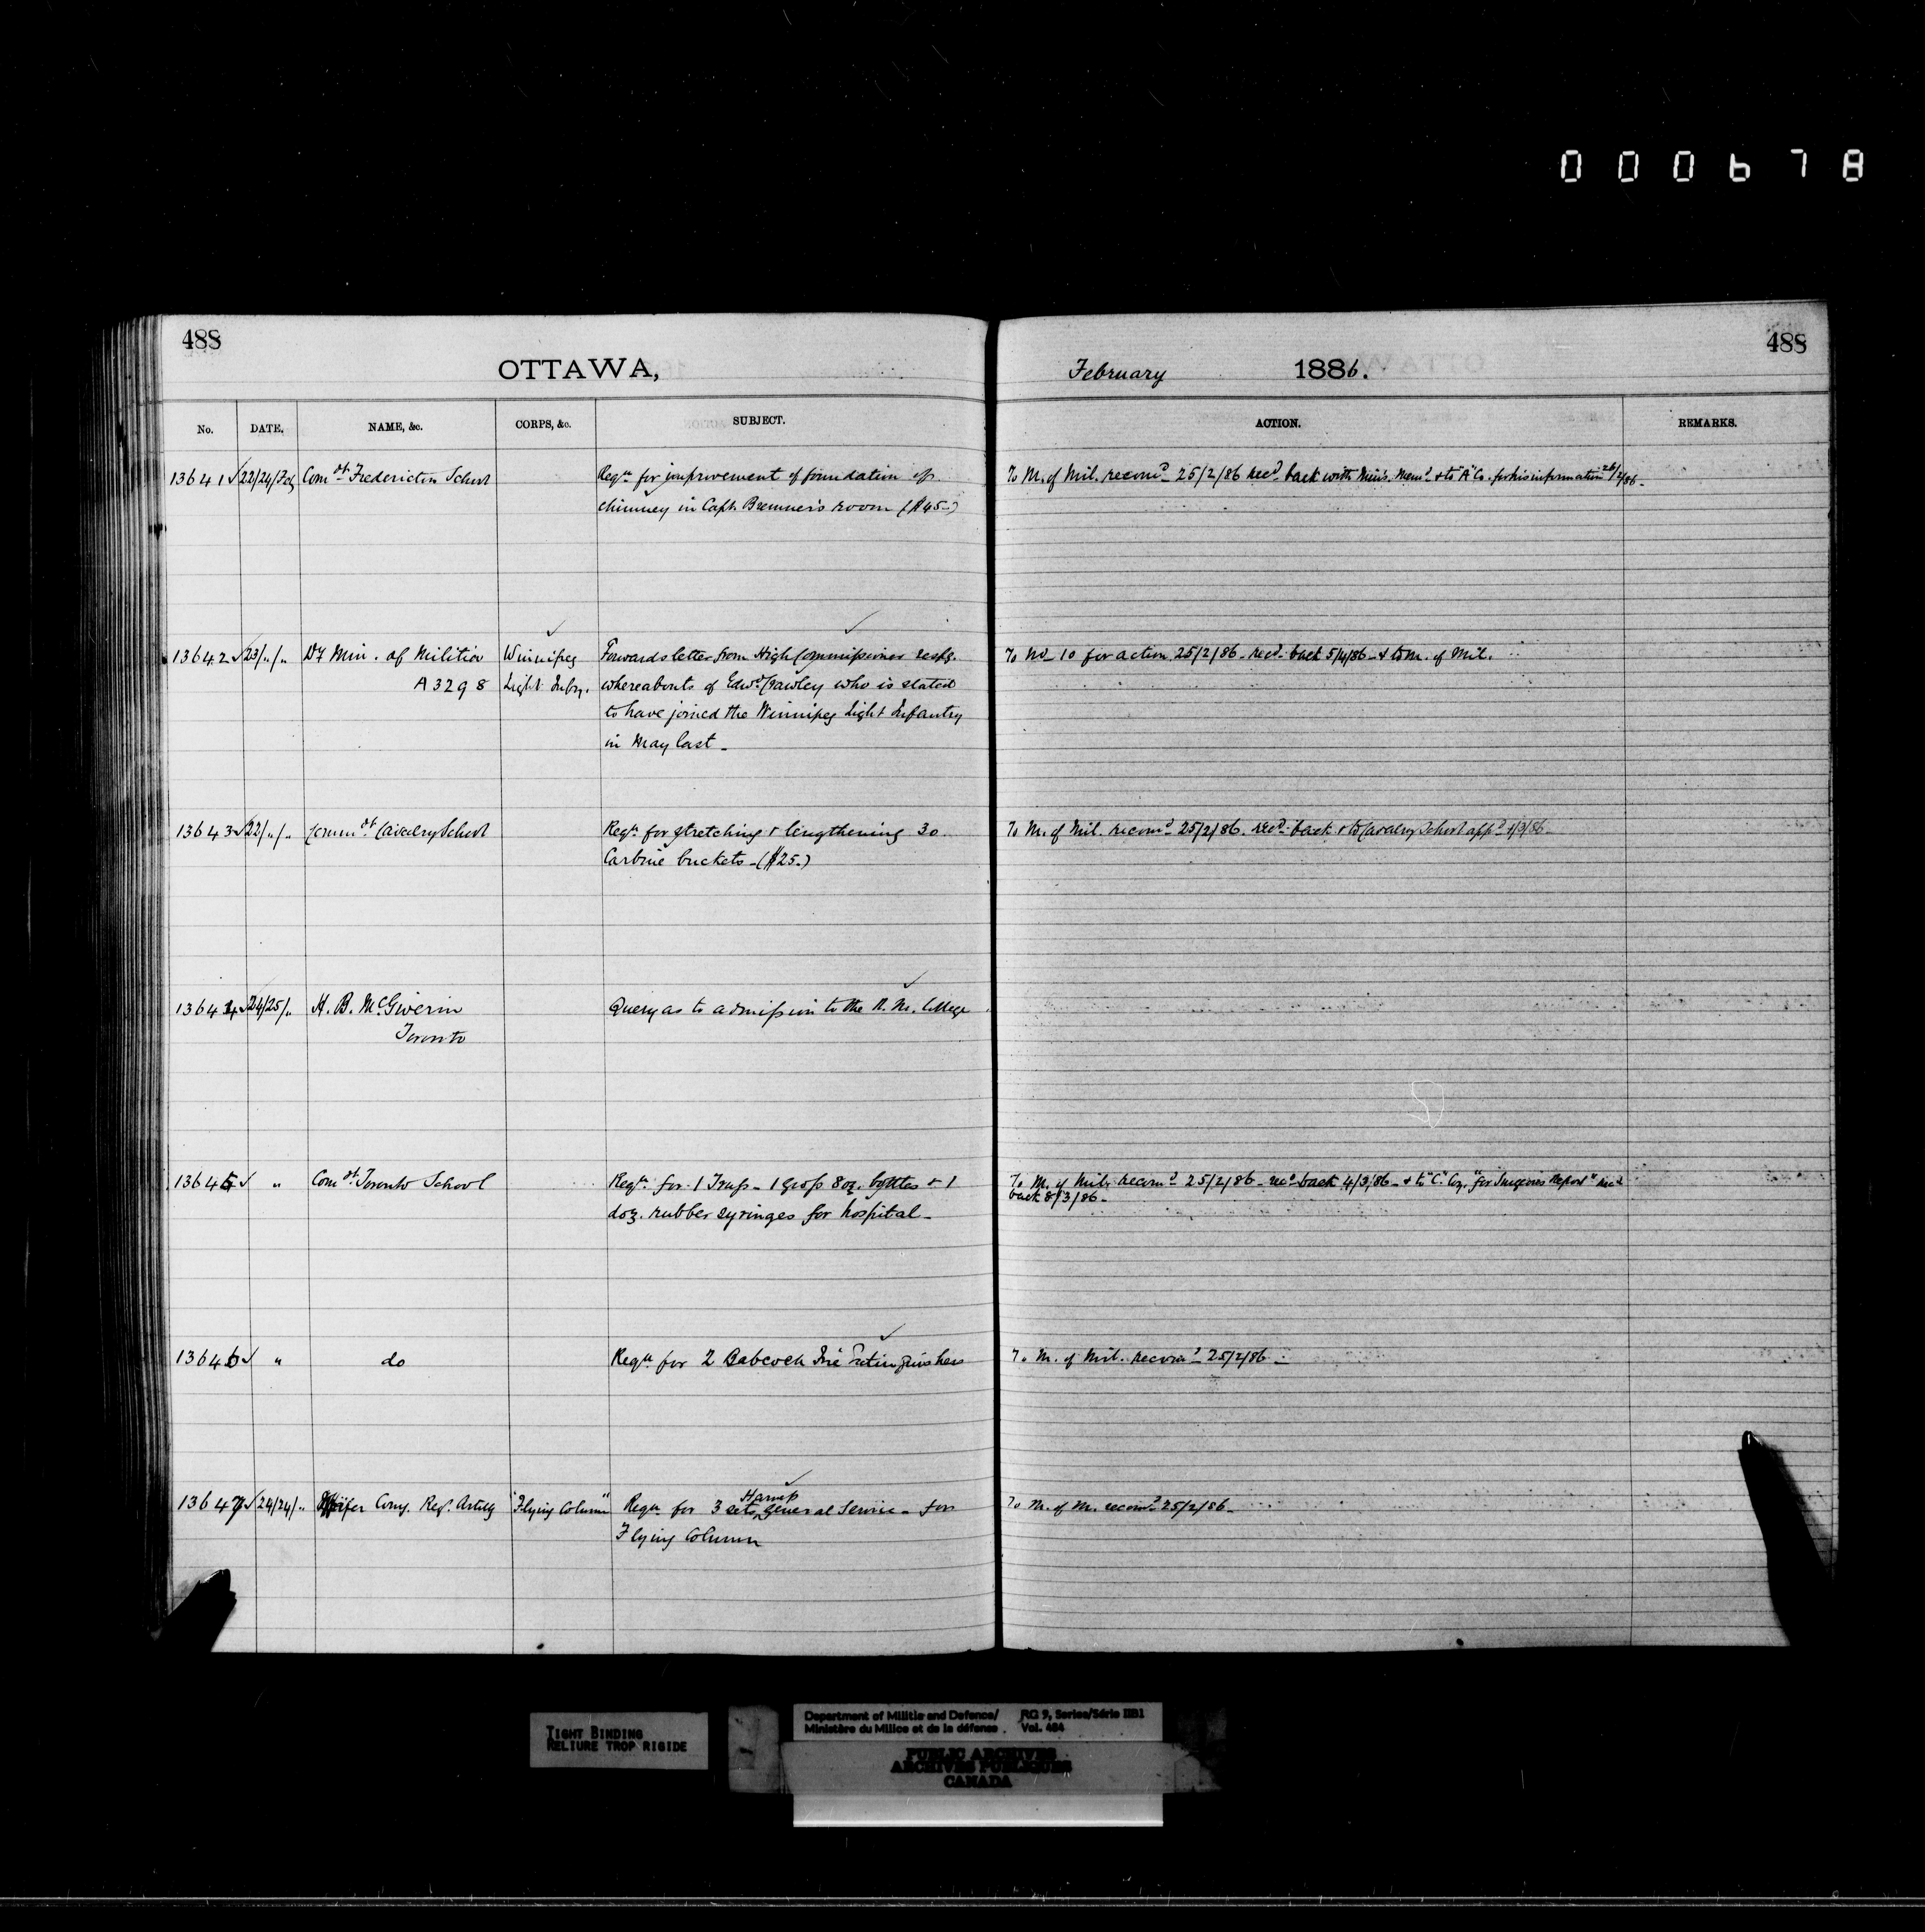 000678
488
488
OTTAWA,
February 1886.
No. DATE. NAME, &c. CORPS, &c. SUBJECT. ACTION. REMARKS.
13641 ✓ 22/24/Feb Comdt Fredericton School Reqn for improvement of foundation of To M. of Mil. recomd 25/2/86 Recd back with Min's Memo & to "A" Co. for his information 26/2/86 -
chimney in Capt. Bremner's room ($45-)
13642 ✓ 23/"/" Dy Min. of Militia Winnipeg Forwards letter from High Commissioner respg. To No 10 for action 25/2/86 - recd back 5/4/86 - & to M. of Mil.
A 3298 Light Infty. whereabouts of Edwd Crawley who is stated
to have joined the Winnipeg Light Infantry
in May last -
13643 ✓ 22/"/" Commdt Cavalry School Reqn for stretching & lengthening 30 To M. of Mil. recomd 25/2/86. recd back & to Cavalry School appd 4/3/86 -
Carbine buckets - ($25.)
13644 ✓ 24/25/" H. B. McGiverin Query as to admission to the R. M. College
Toronto
13645 ✓ " Comdt Toronto School Reqn for 1 Truss - 1 gross 8 oz. bottles & 1 To M. of Mil. recomd 25/2/86 - recd back 4/3/86 - & to "C" Coy. "for Surgeons Report" recd
doz. rubber syringes for hospital - back 8/3/86 -
13646 ✓ " do Reqn for 2 Babcock Fire Extinguishers To M. of Mil. recomd 25/2/86 -
13647 ✓ 24/24/" Comg. Regt. Artilly "Flying Column" Reqn for 3 sets Harness General Service - for To M. of M. recomd 25/2/86 -
Flying Column
TIGHT BINDING
RELIURE TROP RIGIDE
Department of Militia and Defence/ RG 9, Series/Série IIB1
Ministère du Milice et de la défense . Vol. 484
PUBLIC ARCHIVES
ARCHIVES PUBLIQUES
CANADA